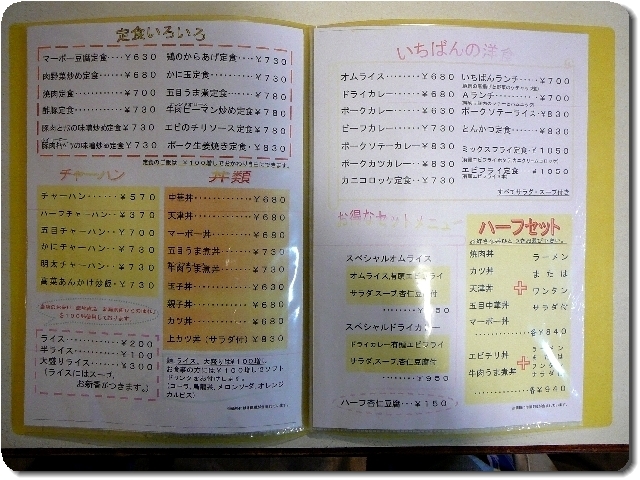 定食いろいろ
マーボー豆腐定食････￥６３０
肉野菜炒め定食･････￥６８０
焼肉定食･･･････￥７００
酢豚定食･･･････￥７３０
の味噌炒め定食￥７３０
の味噌炒め定食￥７３０
鶏のからあげ定食･･･￥７３０
かに玉定食･･････￥７３０
五目うま煮定食････￥７８０
牛肉ピーマン炒め定食･･￥７８０
エビのチリソース定食･･￥７８０
ポーク生姜焼き定食･･￥８３０
チャーハン
チャーハン･･････￥５７０
ハーフチャーハン･･･￥３７０
五目チャーハン････￥７００
かにチャーハン････￥７３０
明太チャーハン････￥７３０
高菜あんかけ炒飯･･￥７３０
ライス･･･････￥２００
半ライス･･････￥１００
大盛りライス････￥３００
（ライスにはスープ、
お新香がつきます。）
丼類
中華丼･･････￥６８０
天津丼･･････￥６８０
マーボー丼････￥６８０
五目うま煮丼･･･￥７３０
牛肉うま煮丼･･･￥７３０
玉子丼･･････￥６３０
親子丼･･････￥６８０
カツ丼･･････￥６８０
上カツ丼（サラダ付）￥８３０
麺，ライス，大盛りは￥１００増し
お食事の方には￥１００増しでソフト
ドリンクをお付けします。
（コーラ、烏龍茶、メロンソーダ、オレンジ
カルピス）
いちばんの洋食
オムライス･･････￥６８０
ドライカレー･････￥６８０
ポークカレー･････￥６３０
ビーフカレー･････￥７３０
ポークソテーカレー･･￥８３０
ポークカツカレー･･･￥８３０
カニコロッケ定食･･･￥７３０
いちばんランチ････￥７００
Ａランチ･･･････￥７００
ポークソテーライス･･￥８３０
とんかつ定食･････￥８３０
ミックスフライ定食･￥１０５０
エビフライ定食･･･￥１０５０
すべてサラダ・スープ付き
お得なセットメニュー
スペシャルオムライス
オムライス，有頭エビフライ
サラダ，スープ，杏仁豆腐付
スペシャルドライカレー
ドライカレー，有頭エビフライ
サラダ，スープ，杏仁豆腐付
･･････￥９５０
ハーフ杏仁豆腐･･･￥１５０
ハーフセット
焼肉丼
カツ丼
天津丼
五目中華丼
マーボー丼
＋
ラーメン
または
ワンタン
サラダ付
･･･各￥８４０
エビチリ丼
牛肉うま煮丼
＋
･･･各￥９４０